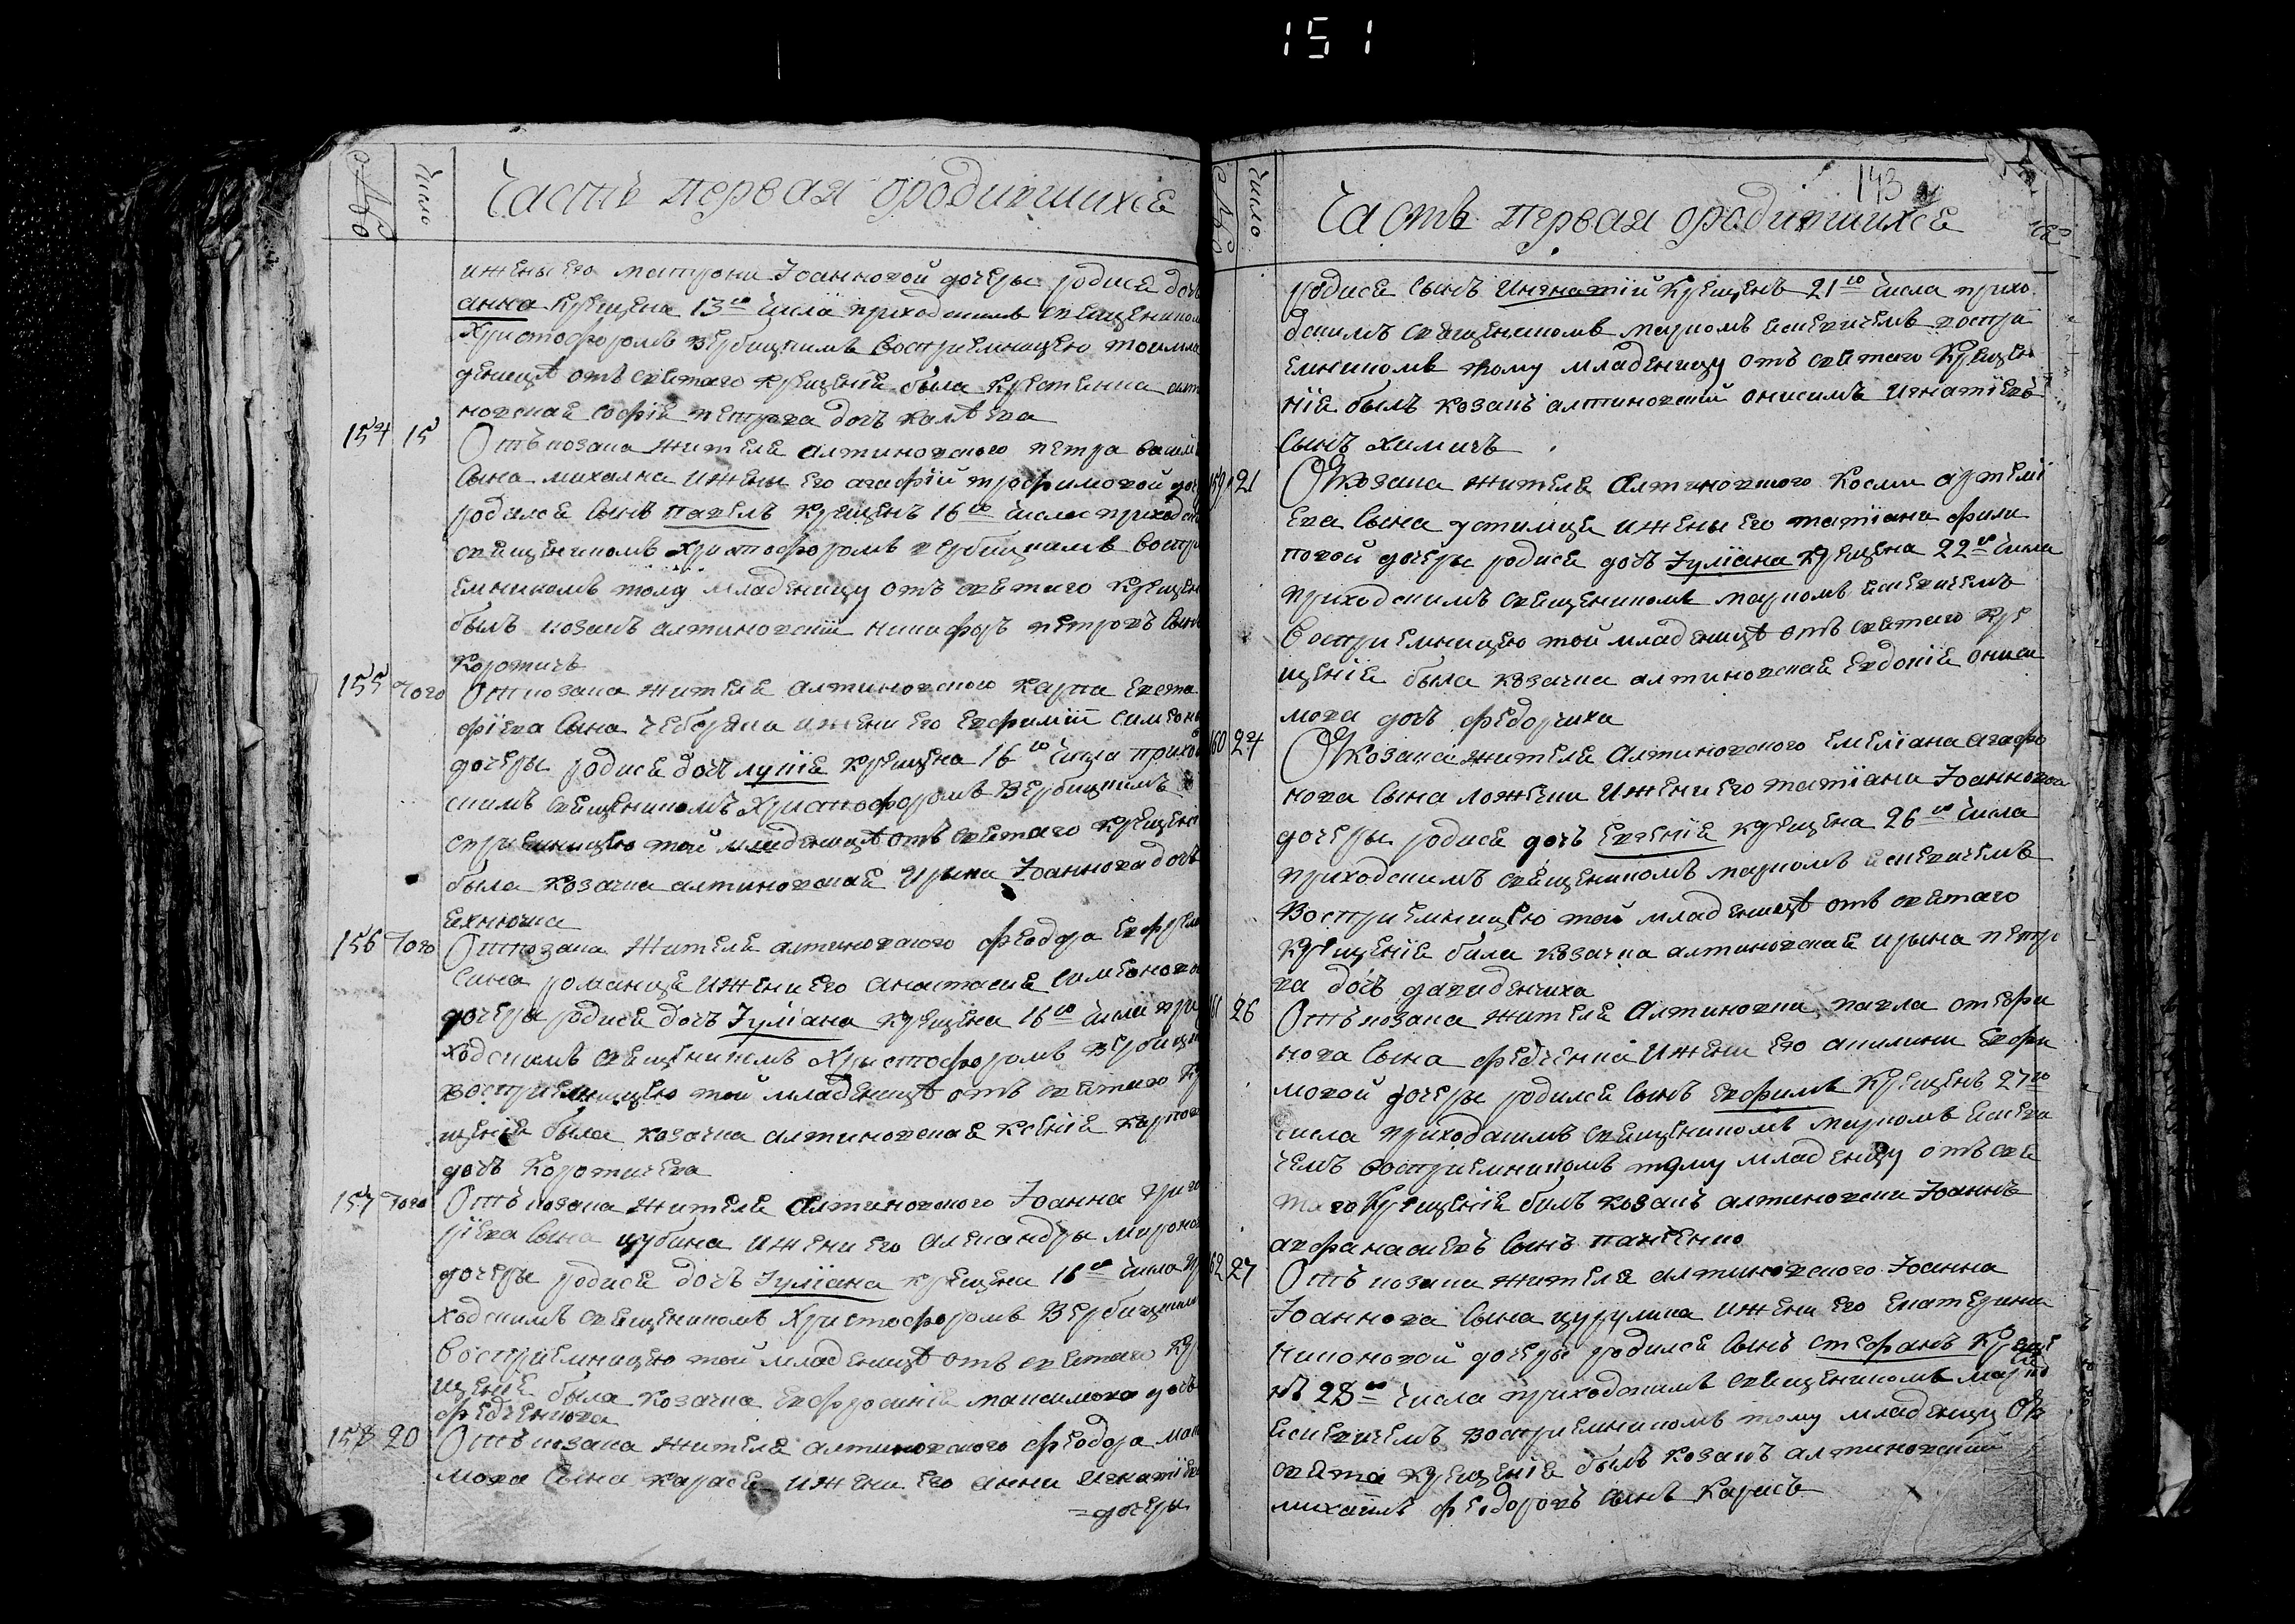 151
№ число Часть первая ородившихся
ижены его матрони Іоанновой дочеры родися дочь
анна крещена 13го числа приходскимъ свещенником
Христофоромъ Вербицкимъ восприемницею той мла
денице отъ светаго крещения была крестянка алт
новская софія петрова дочь
154 15 Отъ козака жителя алтиновского петра васил
сына михалка ижены его агафій трофимовой доч
родился сынъ павелъ крещенъ 16го числа приходск
свещенникомъ Христофоромъ вербицкимъ воспри
емникомъ тому младенцу отъ светаго крещен
былъ козакъ алтиновскій никифоръ петровъ сынъ
Коротичъ
155 Того От козака жителя алтиновского карпа евста
фіева сына чеберяка ижени его евфиміи симеонов
дочеры родися дочь лукія крещена 16го числа прихо
скимъ свещенникомъ Христофоромъ Вербицкимъ во
сприемницею той младеницѣ отъ светаго крещенія
была козачка алтиновская Ирина Іоаннова дочь
156 Того От козака жителя алтиновского феодора евфре
сина романца ижени его анастасие симеоново
дочеры родися дочь Іуліана крещена 16го числа при
ходскимъ свещенникомъ Христофоромъ Вербицк
восприемницею той младеницѣ отъ светаго кр
щенія была козачка алтиновская ксенія карпова
дочь Коротичева
157 Того Отъ козака жителя алтиновского Іоанна григо
ріева сына цубина ижени его александры миронов
дочеры родися дочь Іуліана крещена 16го числа пр
ходскимъ свещенникомъ Христофоромъ Вербицким
восприемницею той младеницѣ отъ светаго кр
щенія была козачка евфросинія максимова дочь
федченкова
158 20 Отъ козака жителя алтиновского феодора мак
мова сына карася ижени его анни игнатіев
=дочеры
№ число Часть первая ородившихся 143
родися сынъ Ингнатій крещенъ 21го числа прихо
дскимъ свещенникомъ маркомъ есиевичемъ воспри
емникомъ тому младеницу отъ светаго креще
нія былъ козакъ алтиновскій онисимъ игнатіевъ
сынъ химичъ
159 21 От козака жителя Алтиновского Косми артемі
ева сына устимца ижены его татіани фили
повой дочеры родися дочь Іуліана крещена 22го числа
приходскимъ свещенникомъ маркомъ есиевичемъ
восприемницею той младеницѣ отъ светаго кре
щенія была козачка алтиновская евдокія ониси
мова дочь федорчиха
160 24 От козака жителя Алтиновского емеліана агафо
нова сына ложечки ижени его татіани Іоанновой
дочеры родися дочь евгенія крещена 26го числа
приходскимъ свещенникомъ маркомъ есиевичемъ
Восприемницею той младеницѣ отъ светаго
крещенія била козачка алтиновская ирина петро
ва дочь давиденчиха
161 26 Отъ козака жителя Алтиновки павла отефа
нова сына федченка ижени его акилини евфи
мовой дочеры родился сынъ евфимъ крещенъ 27го
числа приходскимъ свещенникомъ маркомъ есиеви
чемъ восприемникомъ тому младенцу отъ све
таго крещенія билъ козакъ алтиновски Іоаннъ
авфанасиевъ сынъ панченко
162 27 Отъ козака жителя алтиновского Іоанна
Іоаннова сына цурулика ижени его екатерини
никоновой дочеры родился сынъ стефанъ креще
нъ 28го числа приходскимъ свещенникомъ марко
есиевичемъ восприемникомъ тому младенцу От
света крещенія былъ козакъ алтиновскій
михаилъ федоровъ сынъ Карась